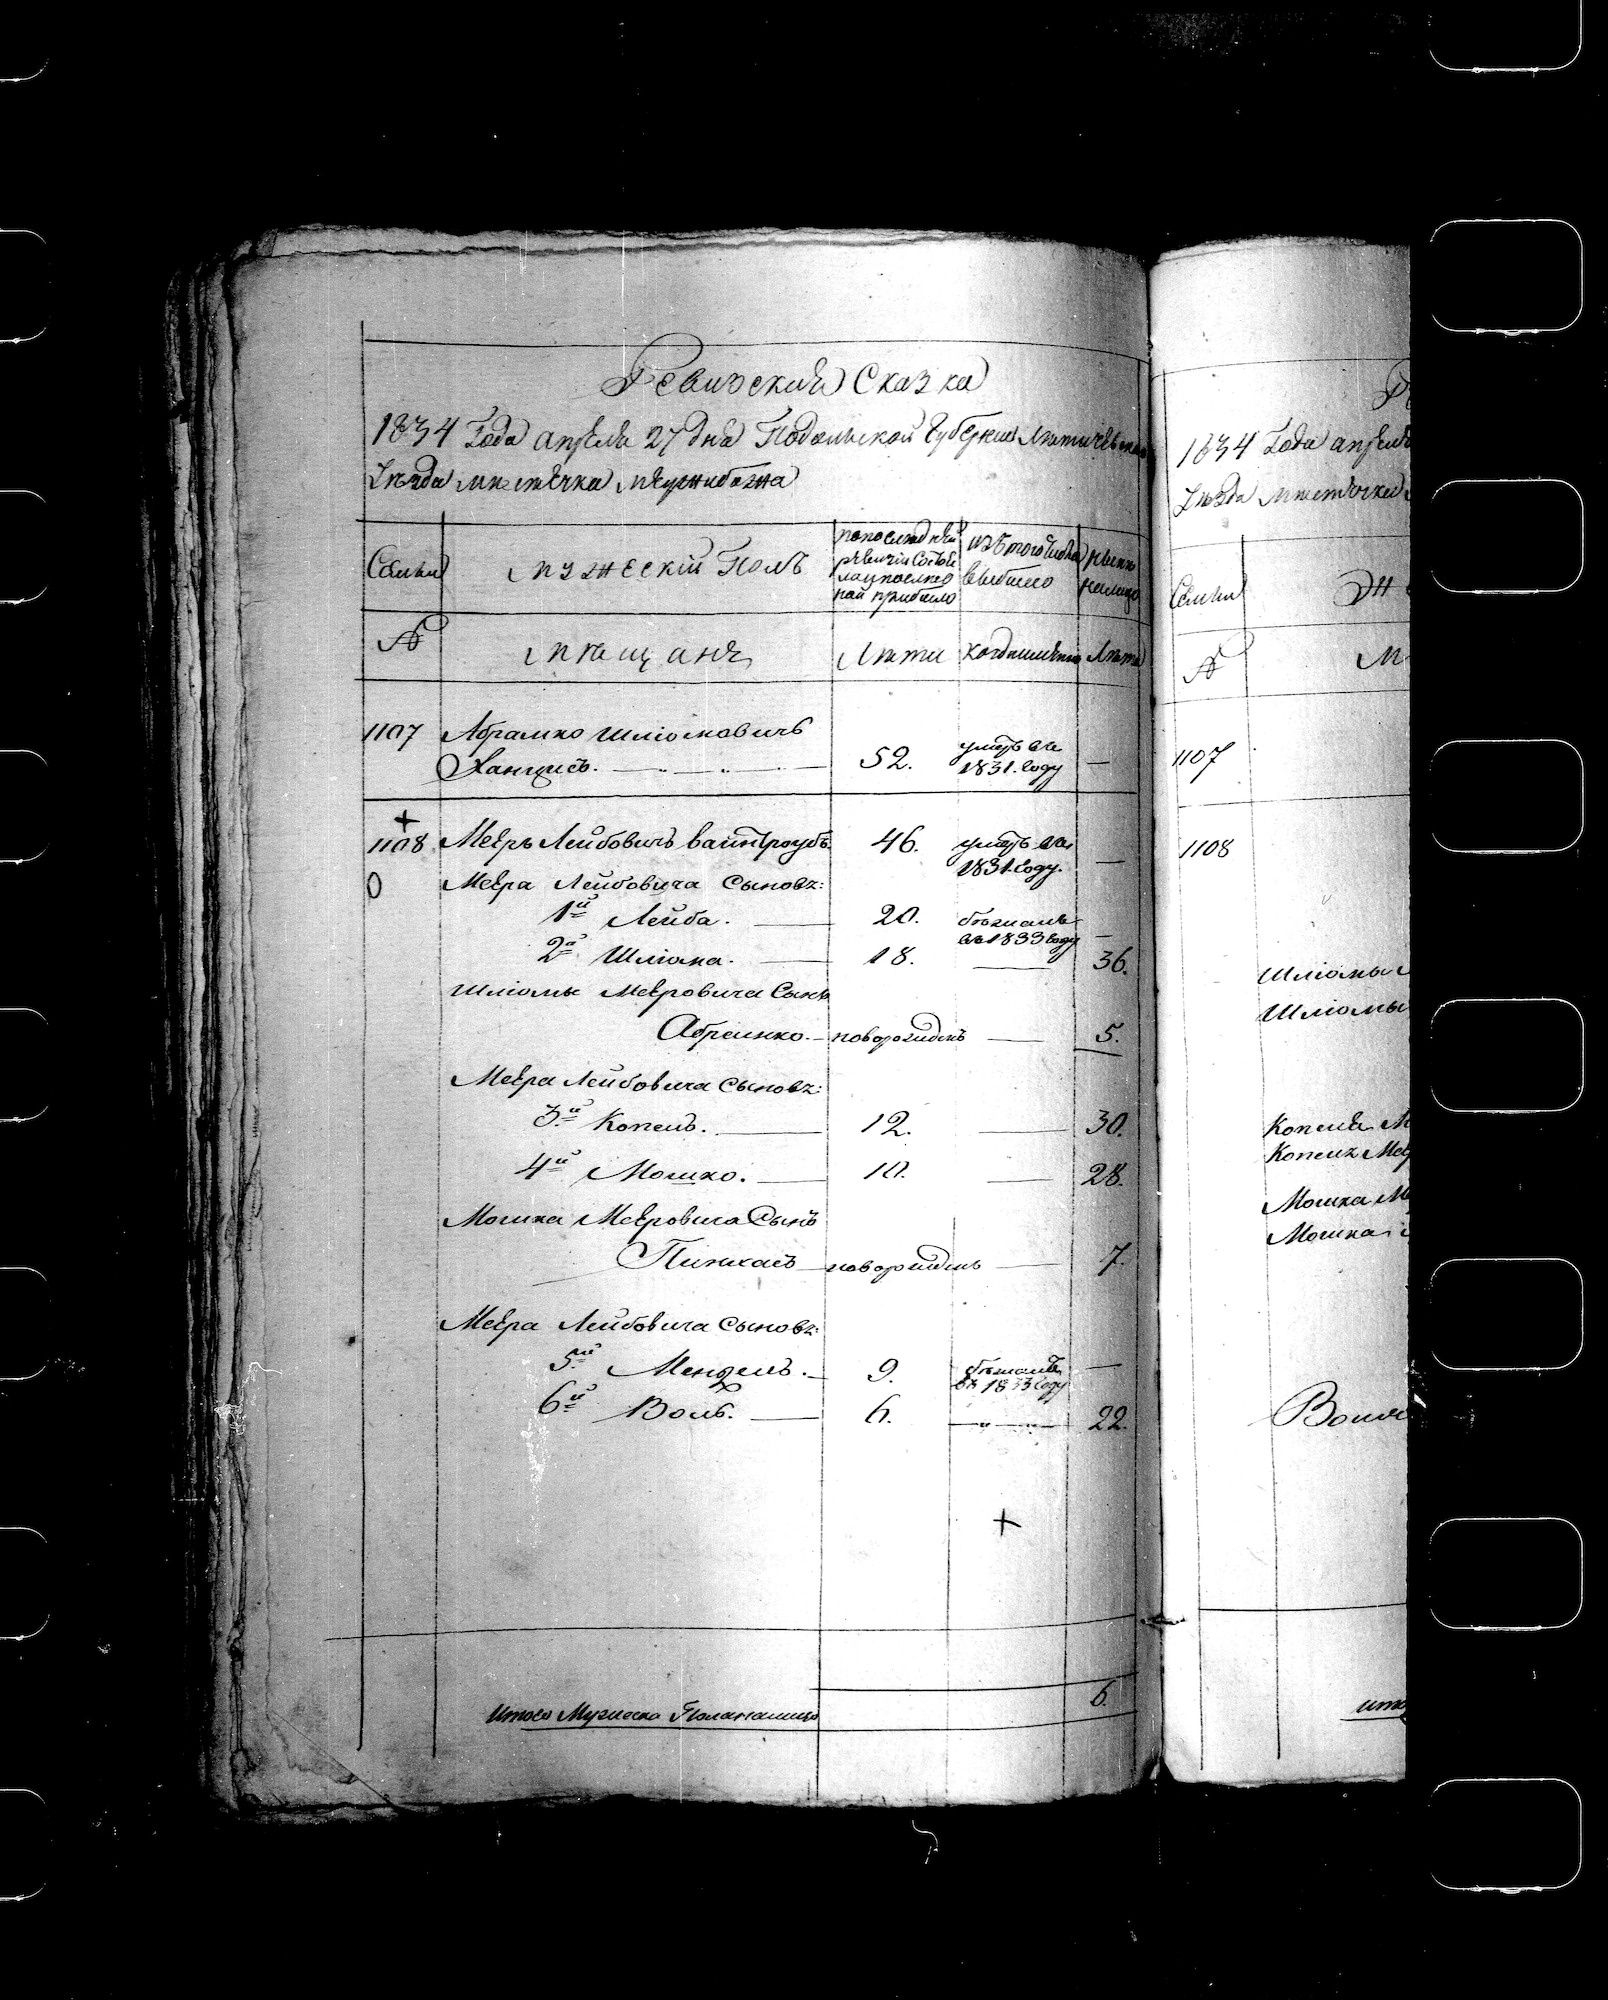 Ревизская Сказка
1834 Года апреля 27 дня Подольской Губернии Летичевскаго
Уезда местечка Меджибожа
Семьи
мужескій Полъ
по последней
ревизіи состо
яло и после
ной прибыло
изъ того числа
выбыло
ныне
налицо
№
мещане
Лета
когда именно
Лета
1107 Абрамко Шліомовичъ
52. умеръ въ
1831. году —
+
1108 Мееръ Лейбовичъ Вайнтроубъ. 46. умеръ въ
1831. году. —
0 Меера Лейбовича Сыновъ:
1й Лейба. — 20. бежалъ
въ 1833 году —
2й Шліома. — 18. — 36.
Шліомы Мееровича Сынъ
Абрамко. — новорожденъ — 5.
Меера Лейбовича Сыновъ:
3й Копель. — 12. — 30.
4й Мошко. — 10. — 28.
Мошка Мееровича Сынъ
Пинхасъ — новорожденъ — 7.
Меера Лейбовича Сыновъ:
5й Мендель. — 9. бежалъ
въ 1833 году —
6й Воль. — 6. — „ — „ — 22.
+
Итого Мужеска Пола налицо 6.
1834 Года апреля
Уезда местечка
Семьи
№
1107
1108
Шліомы
Шліомы
Копеля
Копеля Мее
Мошка М
Мошка